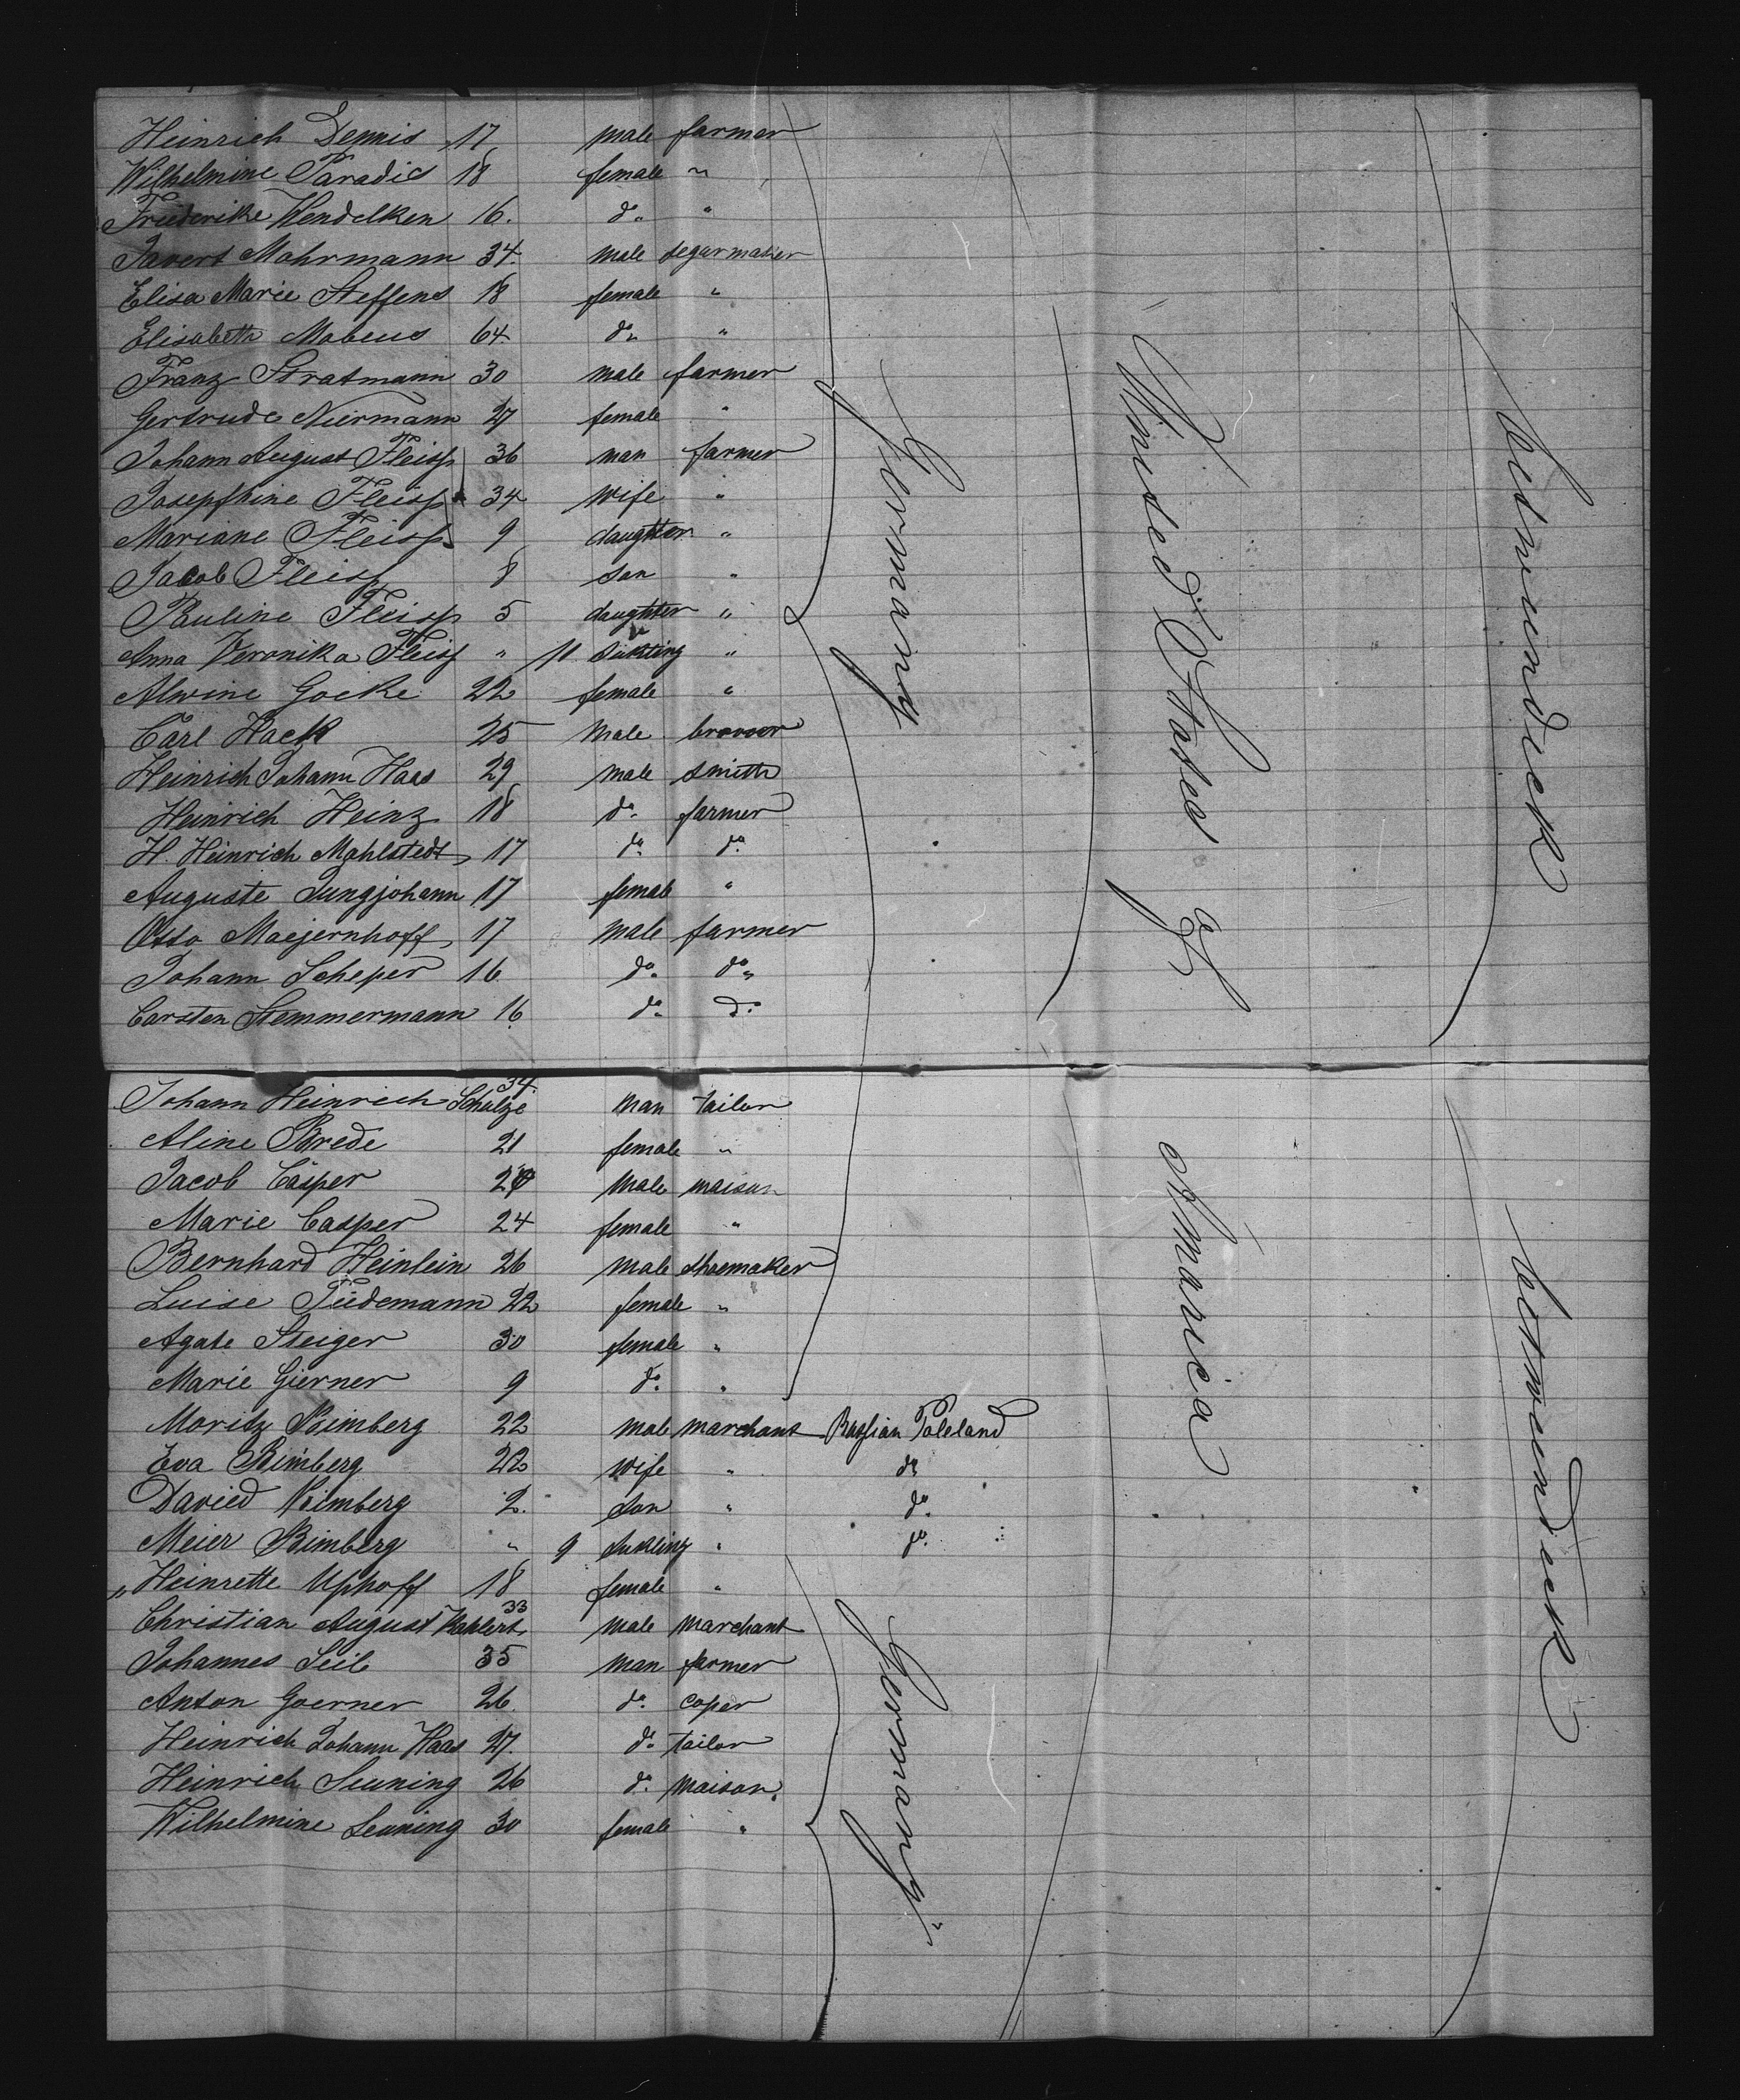 Heinrich Dennis 17 male farmer
Wilhelmine Paradies 18 female "
Friederike Wendelken 16. do. "
Mohrmann 34. male segarmaker
Elisa Marie Steffens 18 female "
Elisabeth Mobeus 64 do. "
Franz Stratmann 30 male farmer
Gertrude Niermann 27 female "
Johann August Fleisp 36 man farmer
Josephine Fleisp 34 wife "
Mariane Fleisp 9 daughter "
Jacob Fleisp 8 son "
Pauline Fleisp 5 daughter "
Anna Veronika Fleisp " 11 sükling "
Alwine Goeke 22 female "
Carl Hack 25 male brower
Heinrich Johann Haas 29 male smith
Heinrich Heinz 18 do. farmer
H. Heinrich Mahlstedt 17 do. do.
Auguste Jungjohann 17 female "
Otto Maejernhoff 17 male farmer
Johann Scheper 16. do. do.
Carsten Stemmermann 16 do. do.
Germany
United States of
betwendeck
Johann Heinrich Schulze 34. man tailor
Aline Brede 21 female "
Jacob Casper male maison
Marie Casper 24 female "
Bernhard Heinlein 26 male shoemaker
Luise Tiedemann 22 female "
Agate Steiger 30 female "
Marie Gierner 9 do. "
Moritz Bimberg 22 male marchant Russian Poleland
Eva Bimberg 22 wife " do
Daried Bimberg 2. son " do.
Meier Bimberg " 9 sukling " do.
" Heinrette Uphoff 18 female "
Christian August Kahlert 33 male marchant
Johannes Seib 35 man farmer
Anton Goerner 26. do. coper
Heinrich Johann Haas 27. do. tailor
Heinrich Leuning 26 do. maison.
Wilhelmine Leuning 30 female "
Germany
Amarica
betwendeck